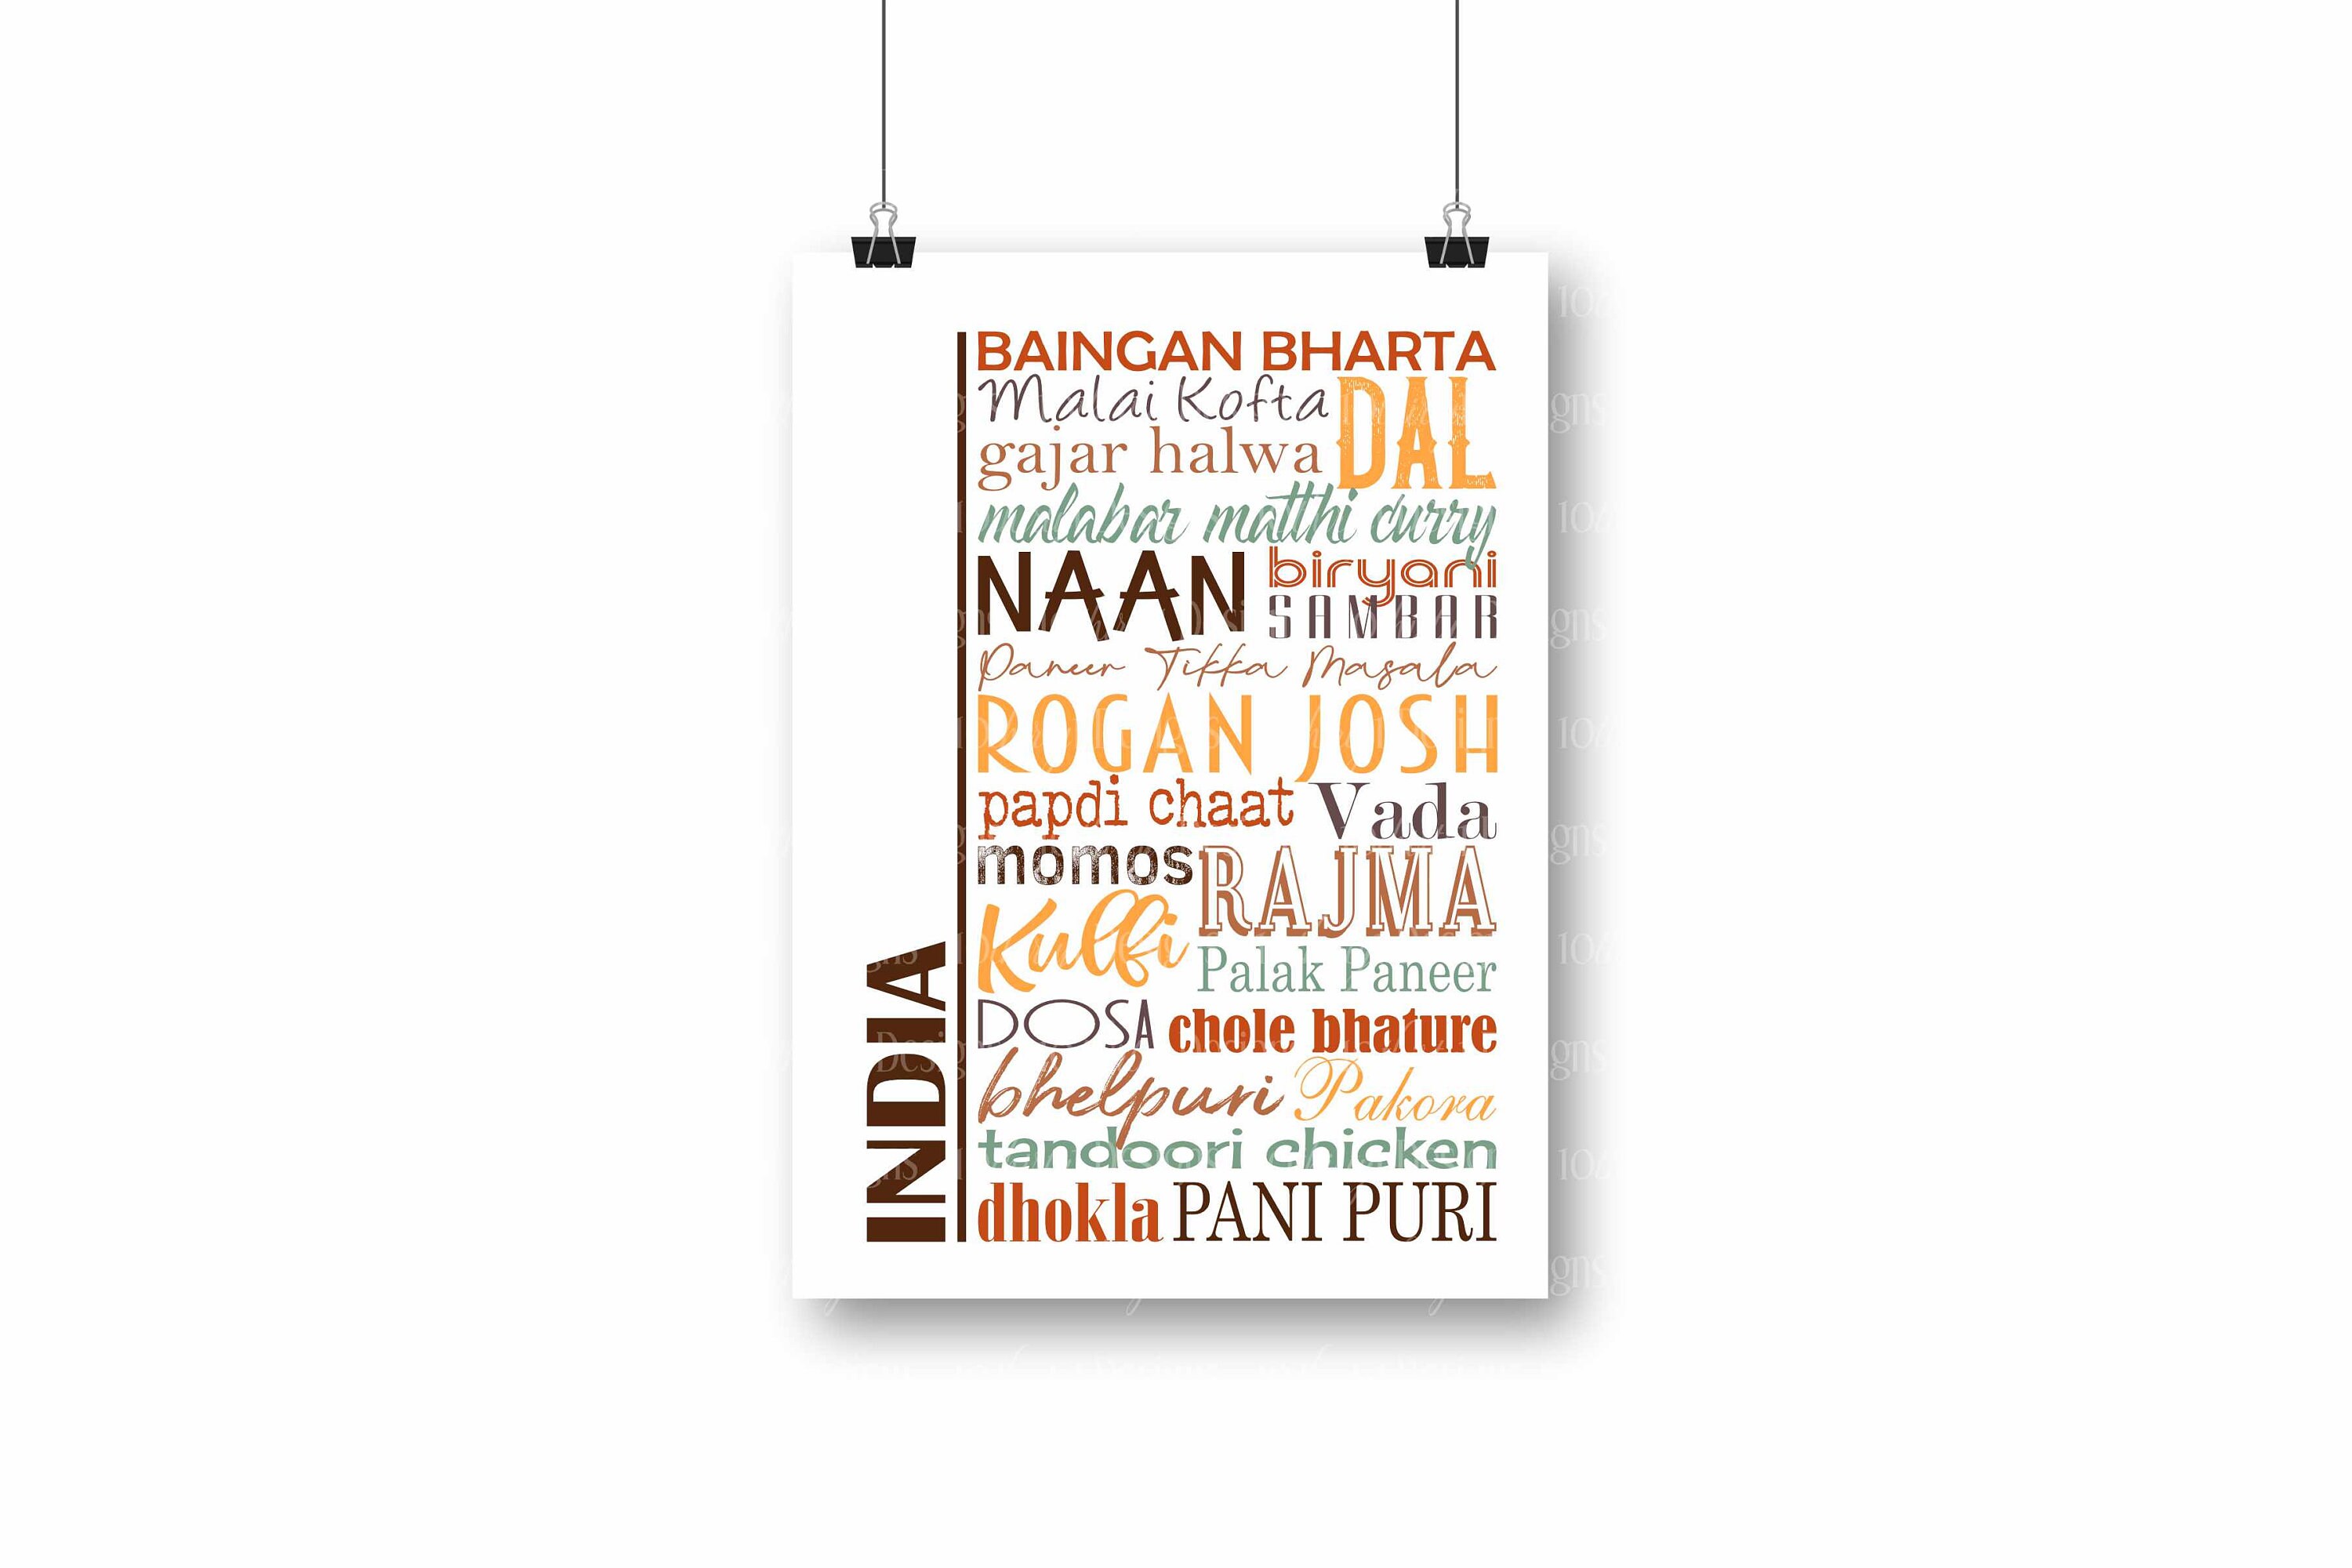 BAINGAN BHARTA
Malai Kofta DAL
gajar halwa
malabar matthi curry
NAAN biryani
SAMBAR
Paneer Tikka Masala
ROGAN JOSH
papdi chaat Vada
momos RAJMA
Kulfi Palak Paneer
DOSA chole bhature
bhelpuri Pakora
tandoori chicken
dhokla PANI PURI
INDIA